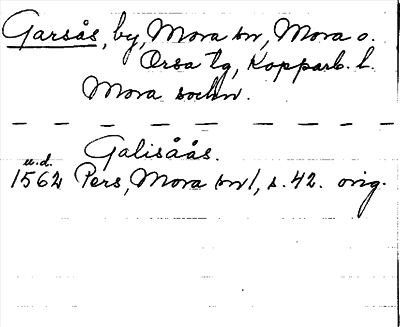 Garsås, by, Mora sn, Mora o.
Orsa tg, Kopparb. l.
Mora sockn.
Galisåås.
u.d.
1562 Pers, Mora sn 1, s. 42. orig.